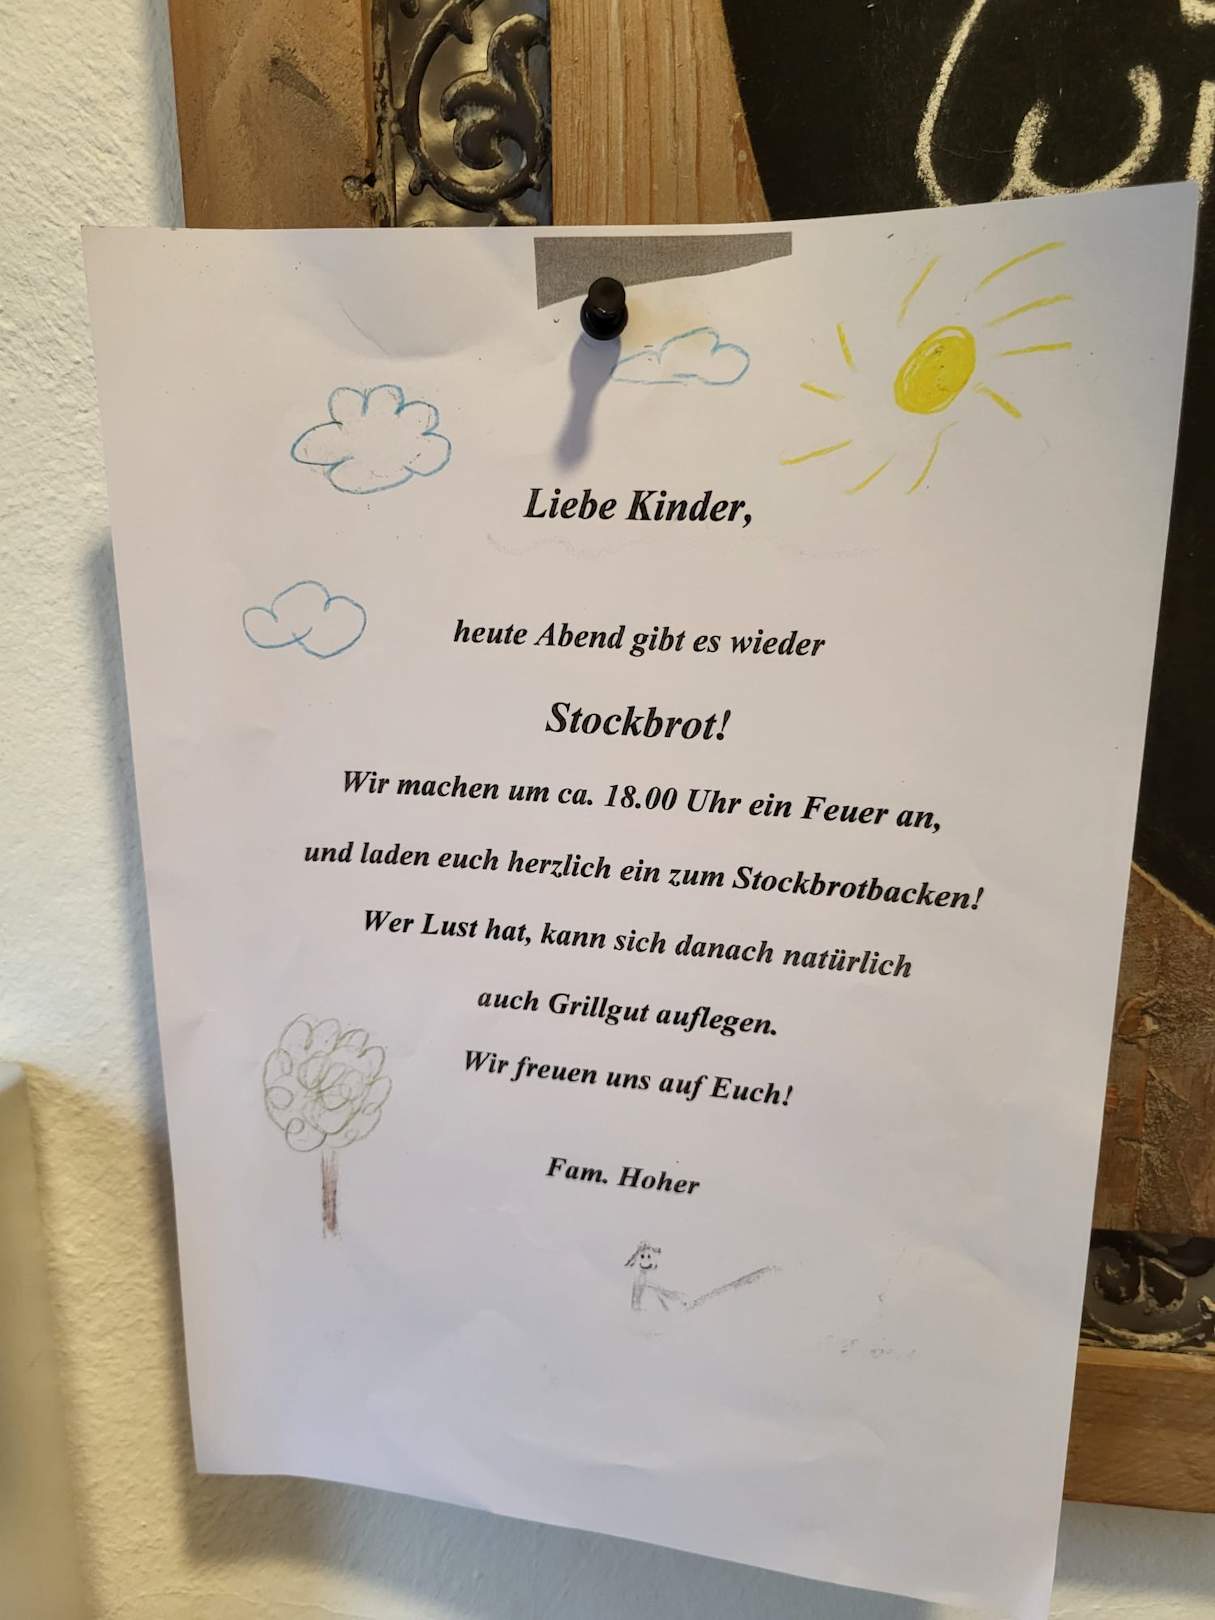 Liebe Kinder,
heute Abend gibt es wieder
Stockbrot!
Wir machen um ca. 18.00 Uhr ein Feuer an,
und laden euch herzlich ein zum Stockbrotbacken!
Wer Lust hat, kann sich danach natürlich
auch Grillgut auflegen.
Wir freuen uns auf Euch!
Fam. Hoher